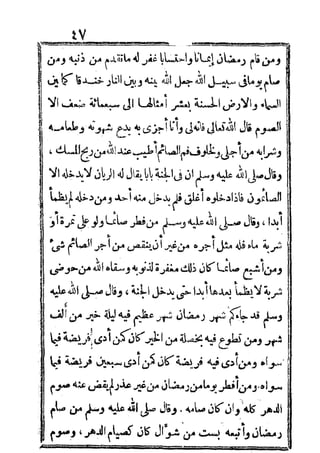 ٤٧
ومن قام رمضان إيمانا واحتسابا غفر له ما تقدم من ذنبه ومن
صام يوما في سبيل الله جعل الله بينه وبين النار خندقا كما بين
السماء والارض الحسنة بعشر أمثالها الى سبعمائة ضعف الا
الصوم قال الله تعالى فانه لى وأنا أجزى به يدع شهوته وطعامه
وشرابه من أجلى وخلوف فم الصائم أطيب عند الله من ريح المسك ،
وقال صلى الله عليه وسلم ان فى الجنة بابا يقال له الريان لا يدخله الا
الصائمون فاذا دخلوه أغلق فلم يدخل منه أحد ومن دخله لم يظمأ
أبدا ، وقال صلى الله عليه وسلم من فطر صائما ولو على تمرة أو
شربة ماء فله مثل أجره من غير أن ينقص من أجر الصائم شئ
ومن أشبع صائما كان ذلك مغفرة لذنوبه وسقاه الله من حوضى
شربة لا يظمأ بعدها أبدا حتى يدخل الجنة ، وقال صلى الله عليه
وسلم قد جاءكم شهر رمضان شهر عظيم فيه ليلة خير من ألف
شهر ومن تطوع فيه بخصلة من الخير كان كمن أدى فريضة فيما
سواه ومن أدى فيه فريضة كان كمن أدى سبعين فريضة فيما
سواه . ومن أفطر يوما من رمضان من غير عذر لم يقض عنه صوم
الدهر كله وان كان صامه . وقال صلى الله عليه وسلم من صام
رمضان وأتبعه بست من شوال كان كصيام الدهر ، وصوم